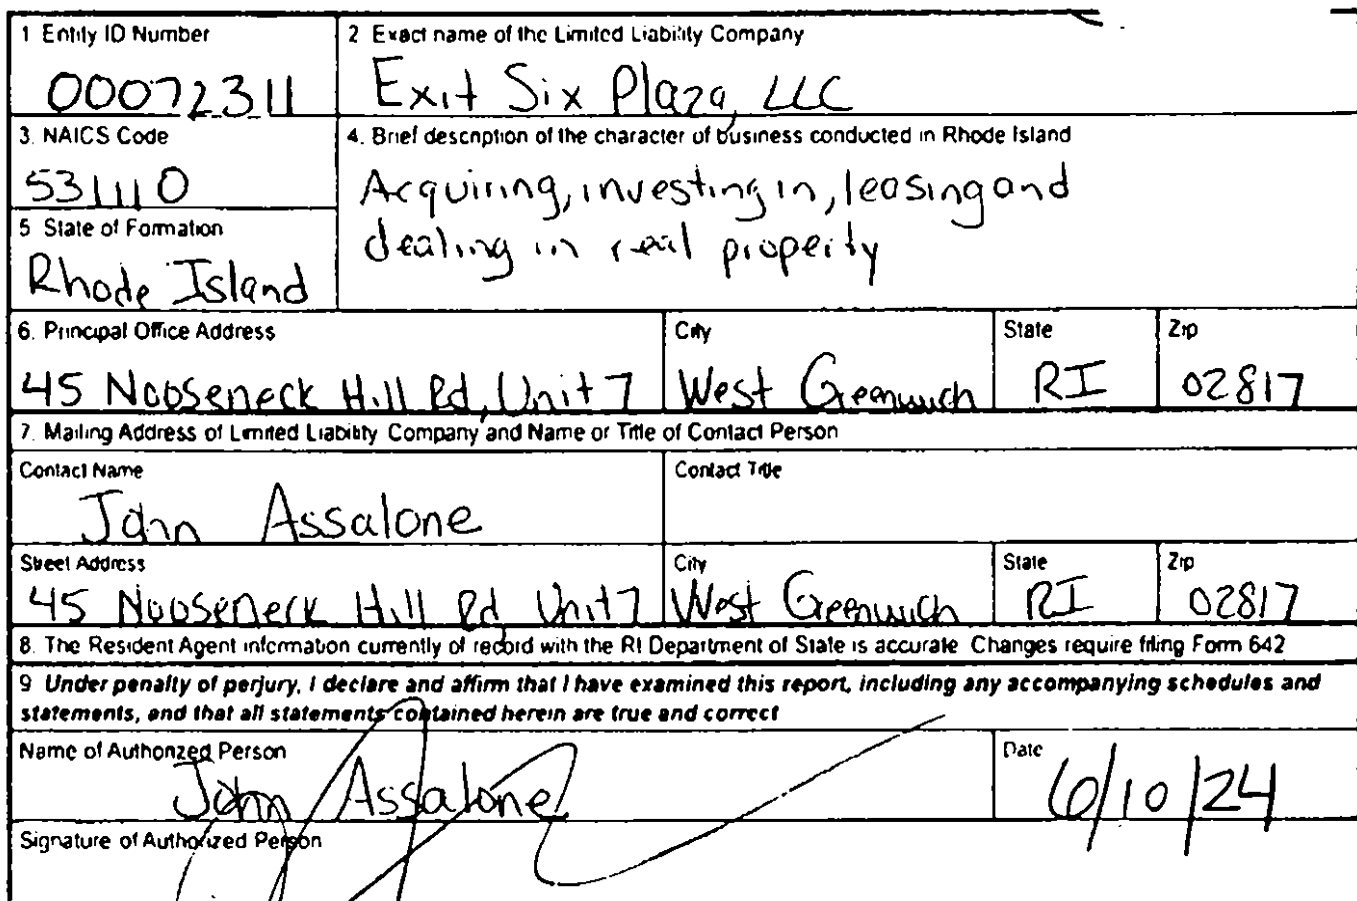 1 Entity ID Number
00072311
2 Exact name of the Limited Liability Company
Exit Six Plaza, LLC
3. NAICS Code
531110
4. Brief description of the character of business conducted in Rhode Island
Acquiring, investing in, leasing and
dealing in real property
5 State of Formation
Rhode Island
6. Principal Office Address
45 Nooseneck Hill Rd, Unit 7
City
West Greenwich
State
RI
Zip
02817
7. Mailing Address of Limited Liability Company and Name or Title of Contact Person
Contact Name
John Assalone
Contact Title
Street Address
45 Nooseneck Hill Rd, Unit 7
City
West Greenwich
State
RI
Zip
02817
8. The Resident Agent information currently of record with the RI Department of State is accurate Changes require filing Form 642
9 Under penalty of perjury, I declare and affirm that I have examined this report, including any accompanying schedules and
statements, and that all statements contained herein are true and correct
Name of Authorized Person
John Assalone
Date
6/10/24
Signature of Authorized Person